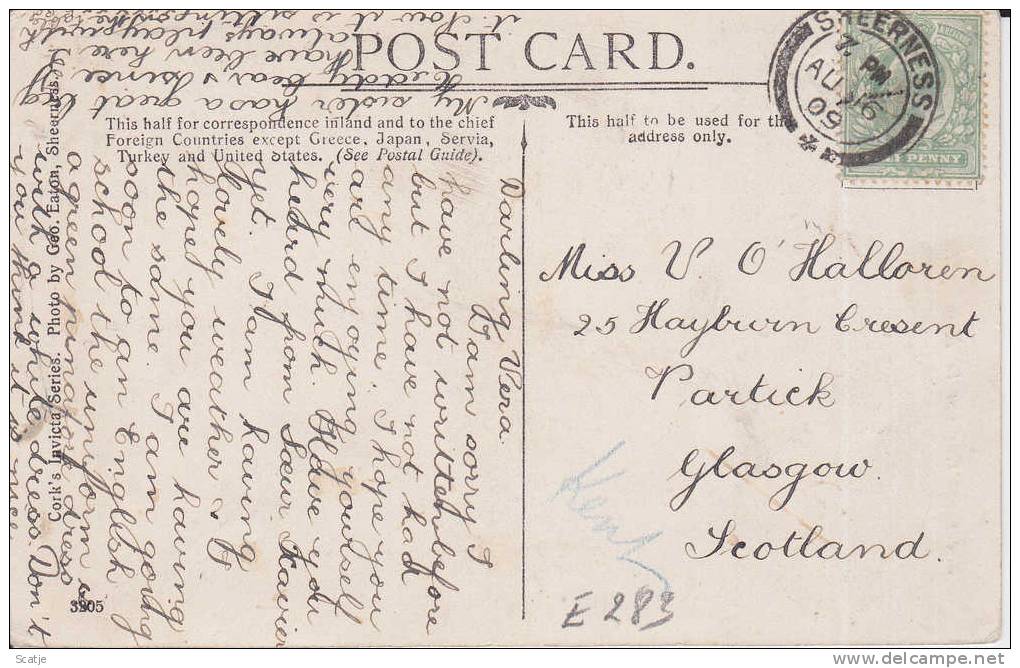 POST CARD.
This half for correspondence inland and to the chief
Foreign Countries except Greece, Japan, Servia,
Turkey and United States. (See Postal Guide).
This half to be used for the
address only.
SHEERNESS
7 PM
AU 16
09
PENNY
Miss V. O'Halloren
25 Hayburn Cresent
Partick
Glasgow.
Scotland.
Kent
E 283
Darling Vera.
I am sorry I
have not written before
but I have not had
any time. I hope you
are enjoying yourself
very much. Have you
heard from Sœur Xavier
yet. I am having
lovely weather & I
hope you are having
the same. I am going
soon to an English
school the uniform is
a green pinafore dress
with a white dress Don't
you think it is nice.
My sister has a great big
Teddy bear & since
I have been here
always play with
it Now it is sitting
Cork's Invicta Series. Photo by Geo. Eaton, Sheerness.
3205
Scatje
delcampe.net